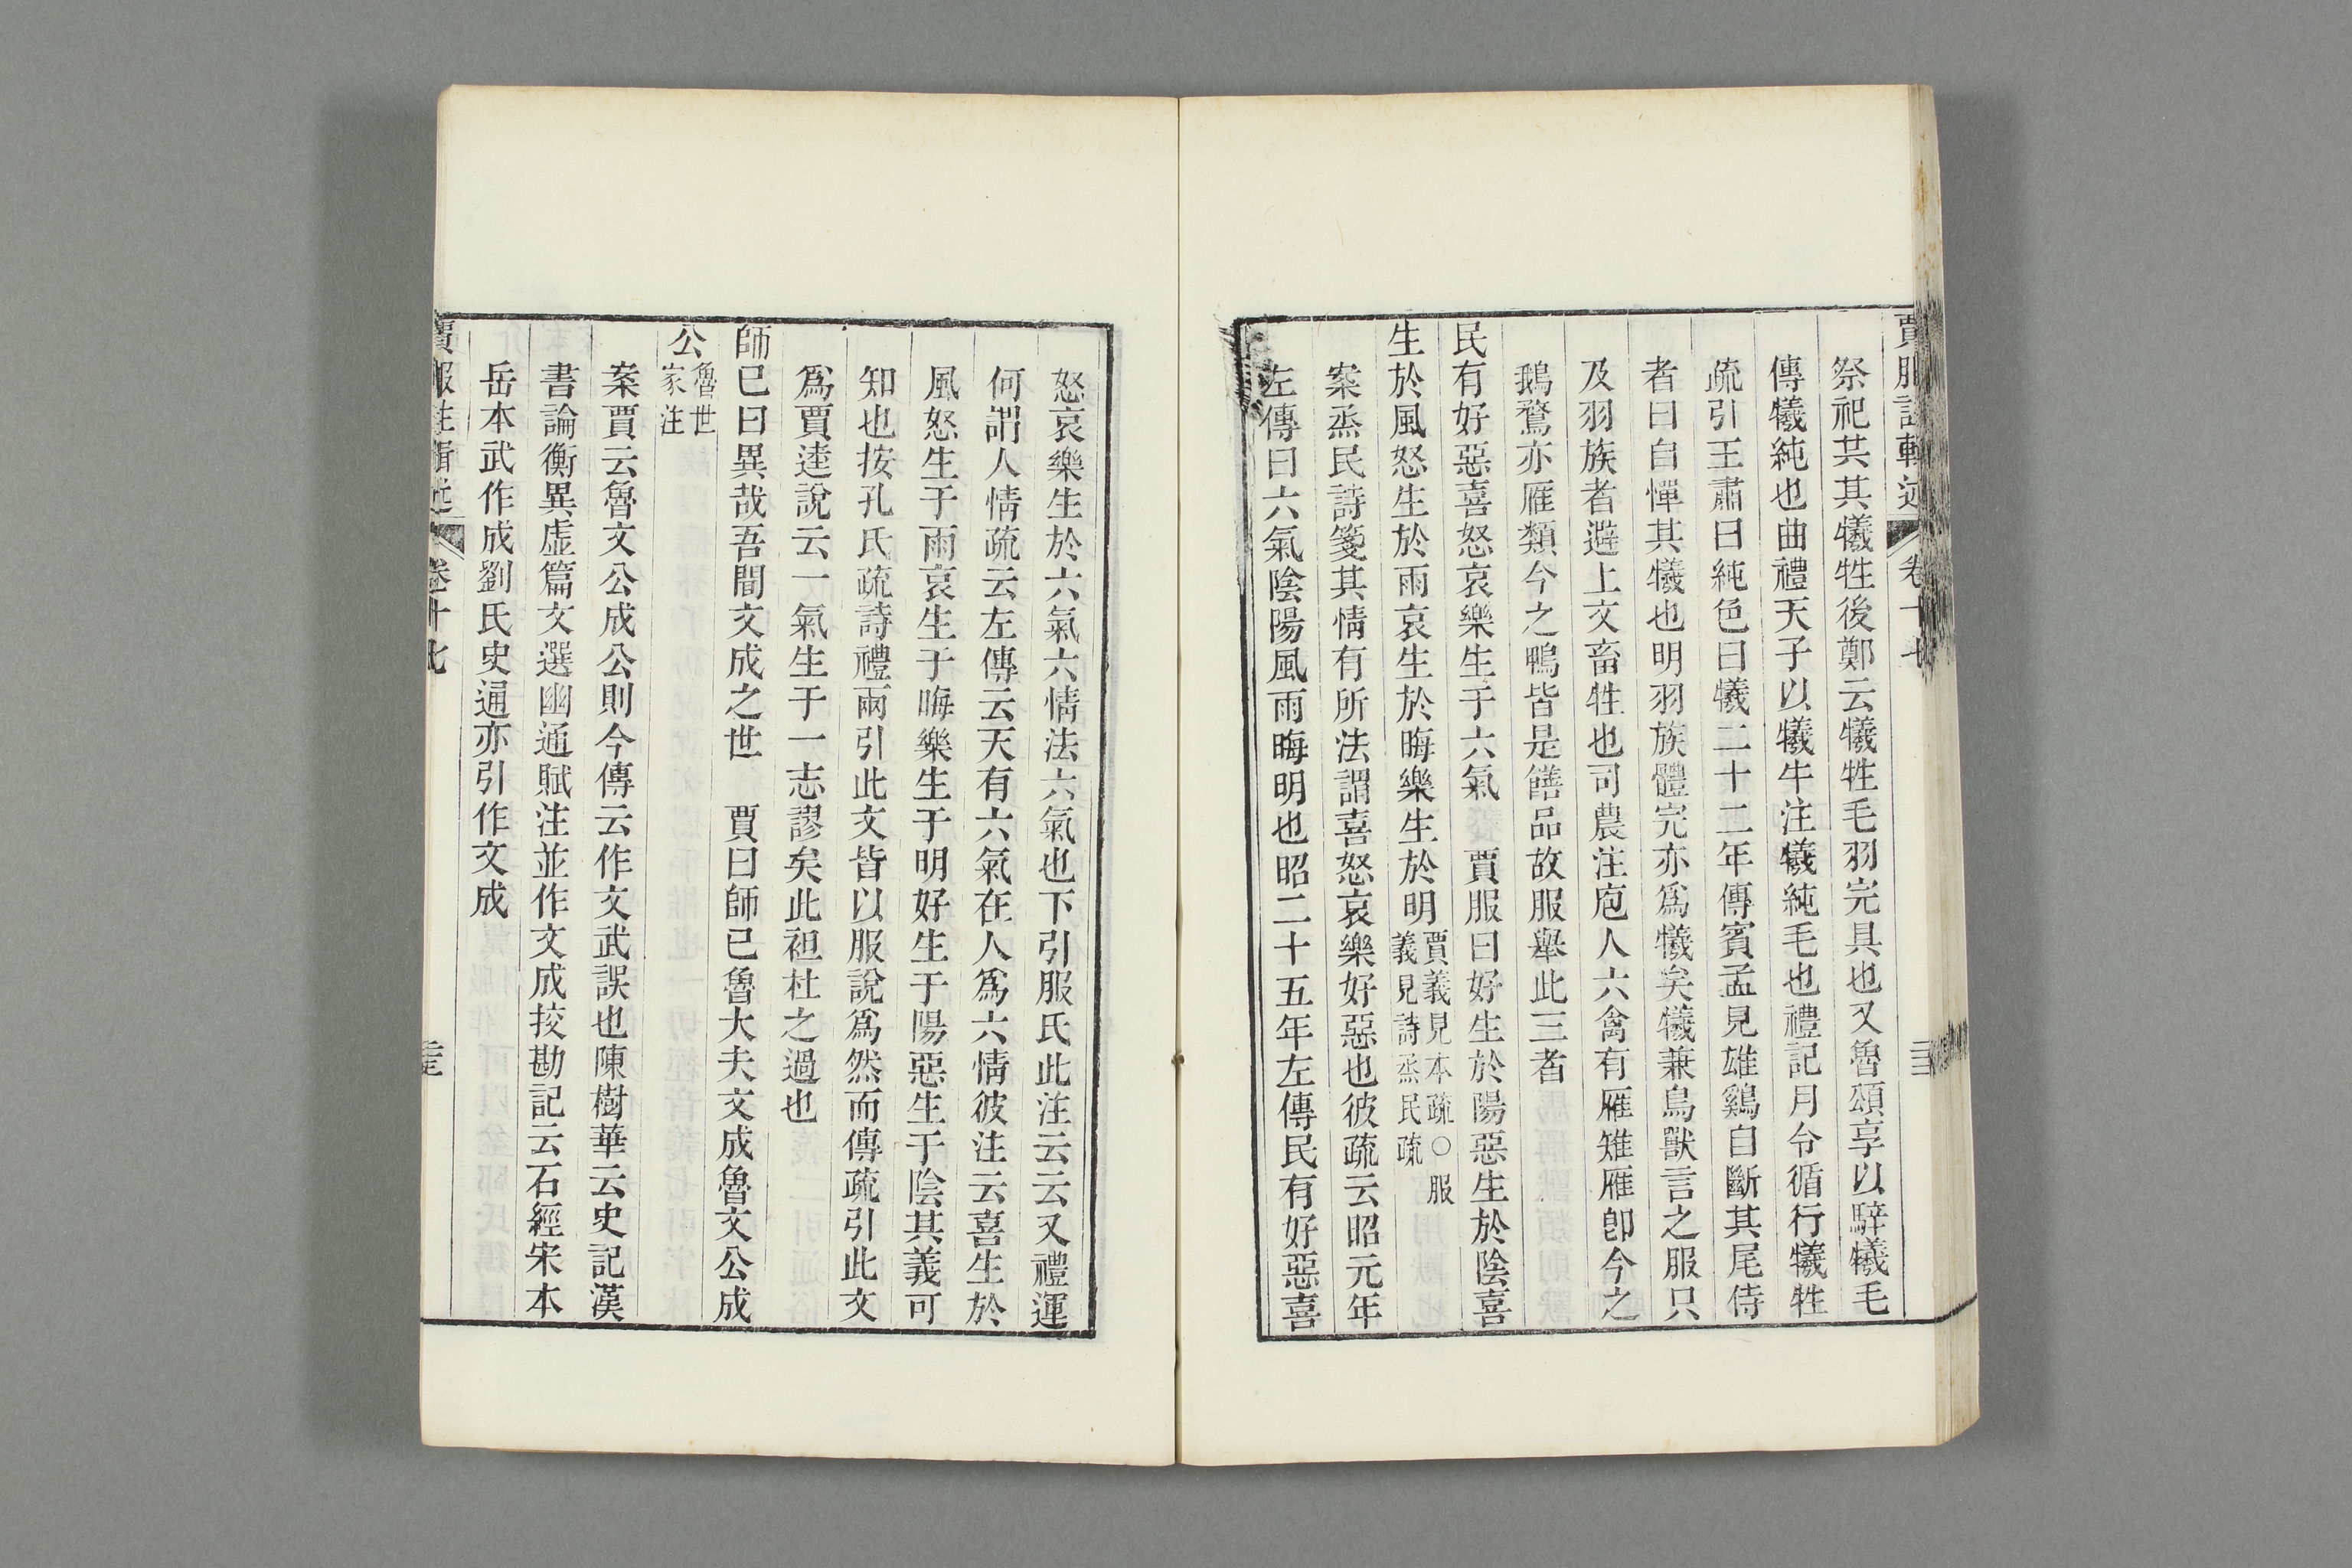 賈服註輯述 卷十七
祭祀共其犧牲後鄭云犧牲毛羽完具也又魯頌享以騂犧毛
傳犧純也曲禮天子以犧牛注犧純毛也禮記月令循行犧牲
疏引王肅曰純色曰犧二十二年傳賓孟見雄鷄自斷其尾侍
者曰自憚其犧也明羽族體完亦爲犧矣犧兼鳥獸言之服只
及羽族者避上文畜牲也司農注庖人六禽有雁雉雁卽今之
鵝鶩亦雁類今之鴨皆是饍品故服舉此三者
民有好惡喜怒哀樂生于六氣　賈服曰好生於陽惡生於陰喜
生於風怒生於雨哀生於晦樂生於明賈義見本疏○服義見詩烝民疏
案烝民詩箋其情有所法謂喜怒哀樂好惡也彼疏云昭元年
左傳曰六氣陰陽風雨晦明也昭二十五年左傳民有好惡喜
怒哀樂生於六氣六情法六氣也下引服氏此注云云又禮運
何謂人情疏云左傳云天有六氣在人爲六情彼注云喜生於
風怒生于雨哀生于晦樂生于明好生于陽惡生于陰其義可
知也按孔氏疏詩禮兩引此文皆以服說爲然而傳疏引此文
爲賈逵說云一氣生于一志謬矣此袒杜之過也
師己曰異哉吾聞文成之世　賈曰師己魯大夫文成魯文公成
公魯世家注
案賈云魯文公成公則今傳云作文武誤也陳樹華云史記漢
書論衡異虛篇文選幽通賦注並作文成挍勘記云石經宋本
岳本武作成劉氏史通亦引作文成
賈服注輯述 卷十七